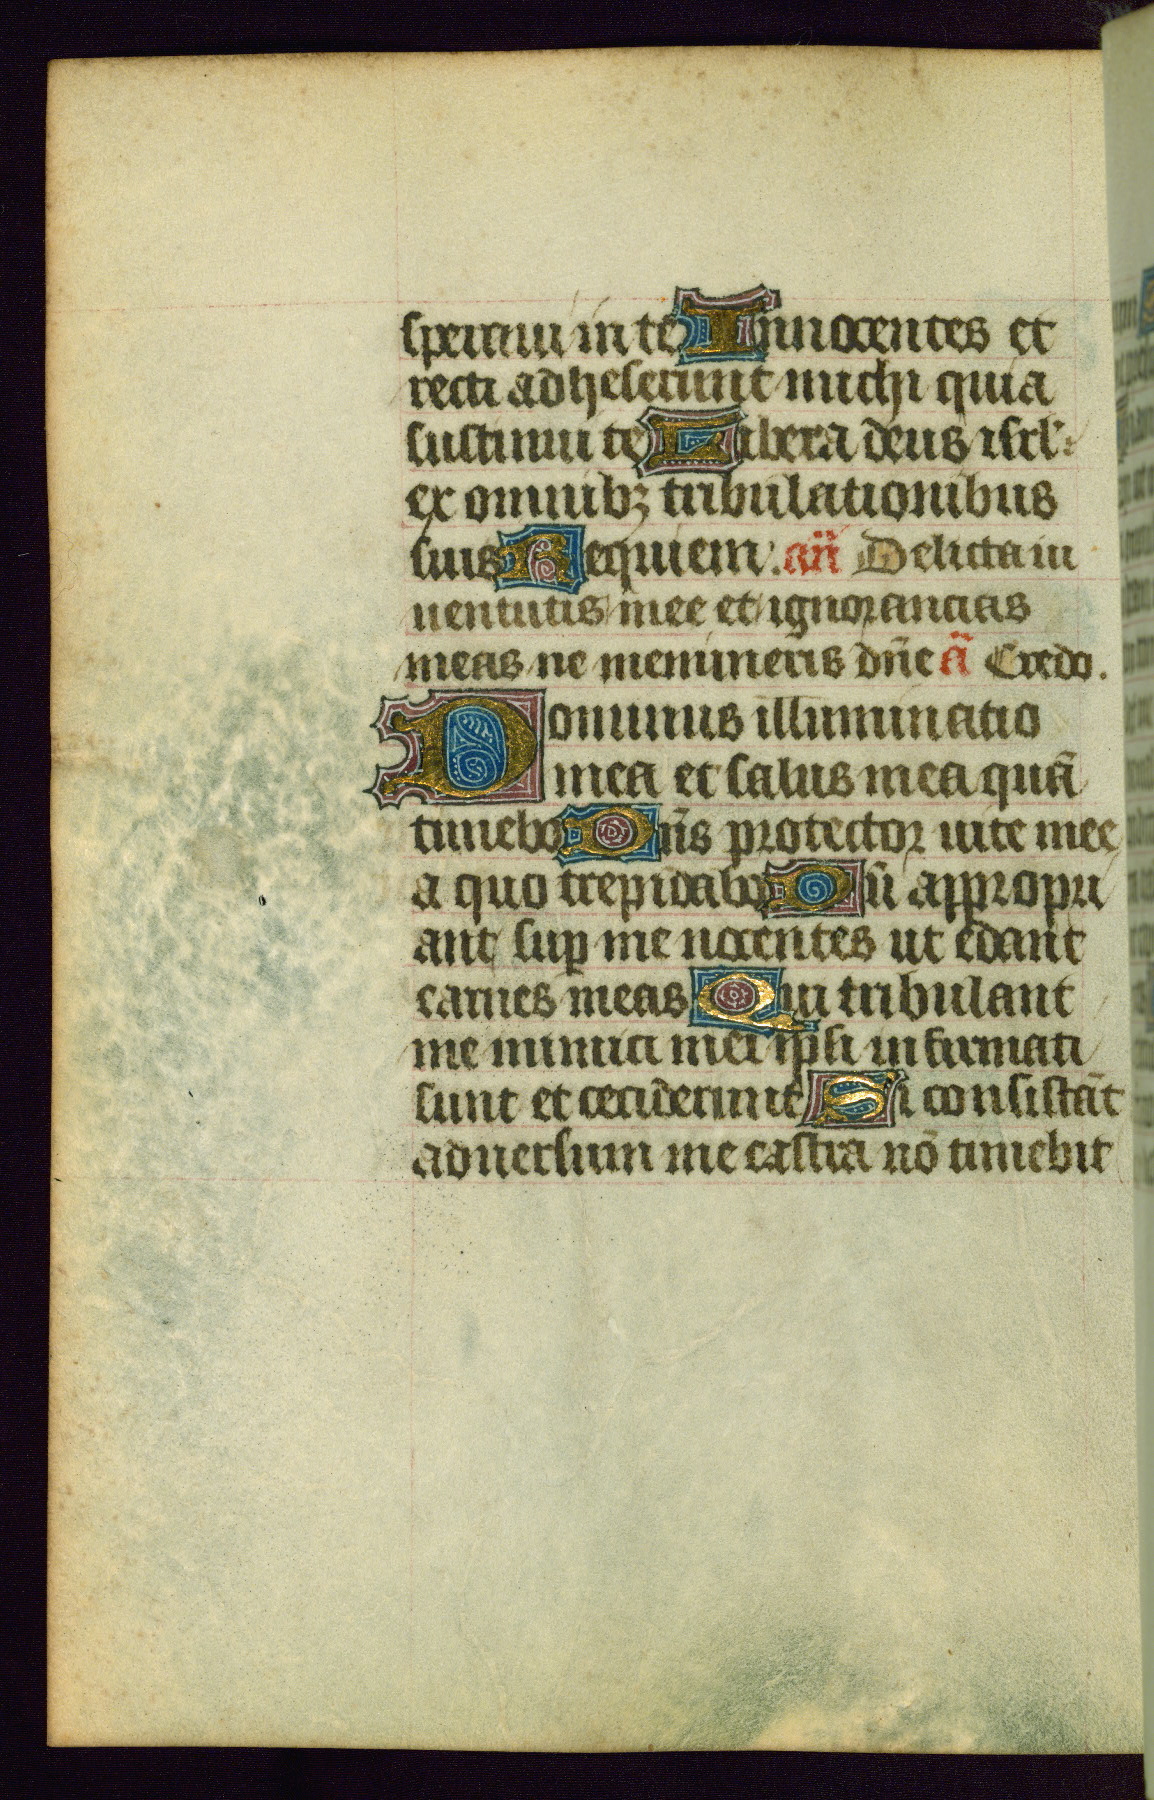 speraui in te Innocentes et
recti adheserunt michi quia
sustinui te Libera deus isrl'
ex omnibꝫ tribulationibus
suis Requiem. an̄ Delicta iu
uentutis mee et ignorancias
meas ne memineris dn̄e ā Credo.
Dominus illuminatio
mea et salus mea quā
timebo Dn̄s protector uite mee
a quo trepidabo Dū appropri
ant suꝑ me nocentes ut edant
carnes meas Qui tribulant
me inimici mei ipsi infirmati
sunt et ceciderunt Si consistāt
aduersum me castra nō timebit